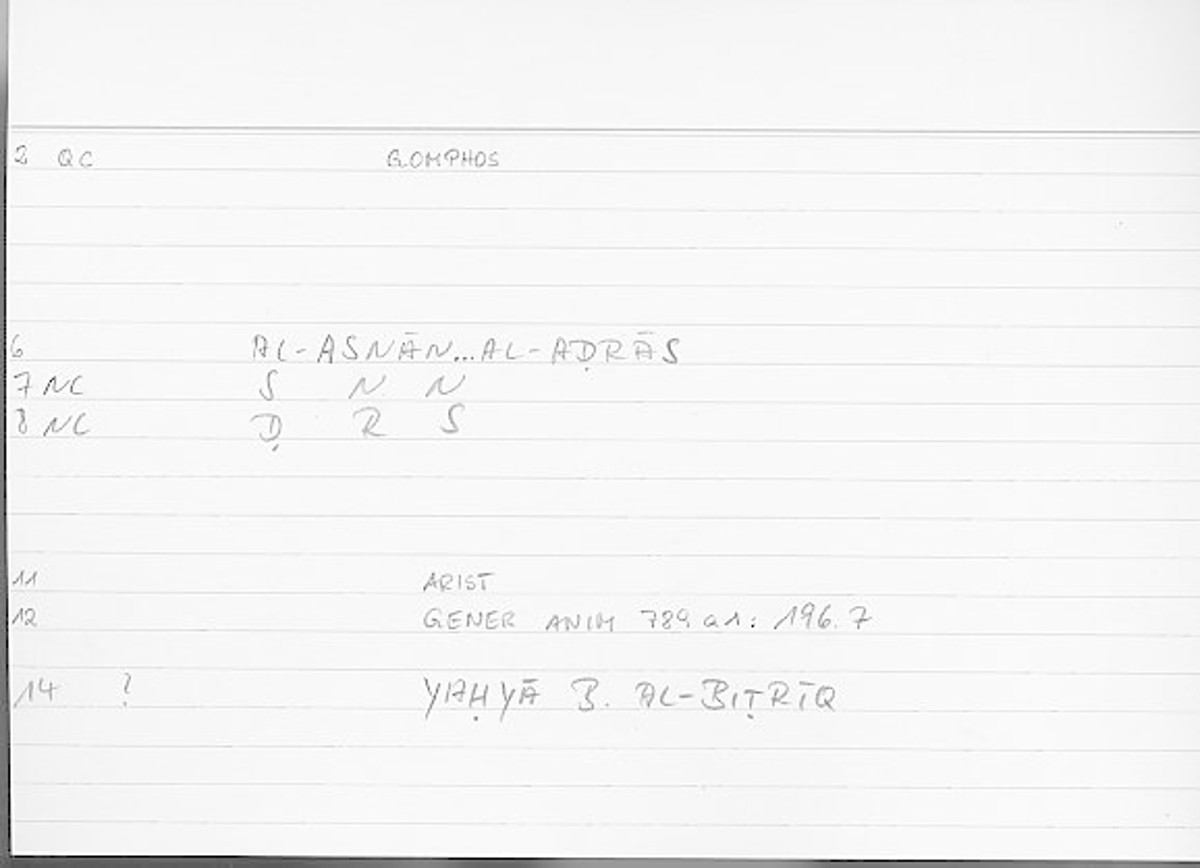 2 QC GOMPHOS
6 AL-ASNĀN...AL-AḌRĀS
7 NC S N N
8 NC Ḍ R S
11 ARIST
12 GENER ANIM 789 a1: 196.7
14 ? YAḤYĀ B. AL-BIṬRĪQ